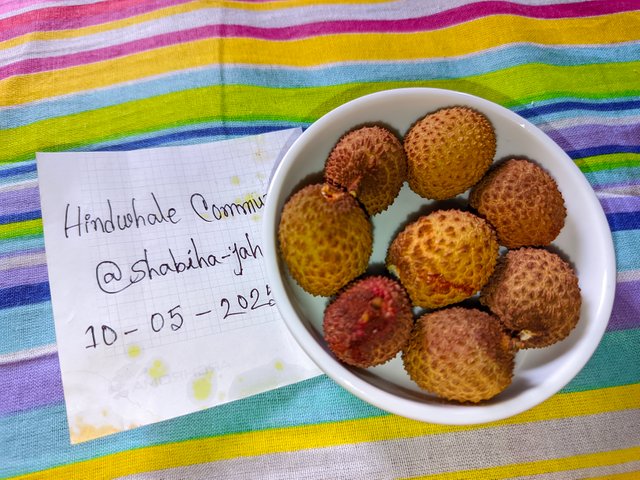 Hindwhale Commu
@shabiha-yah
10-05-2025